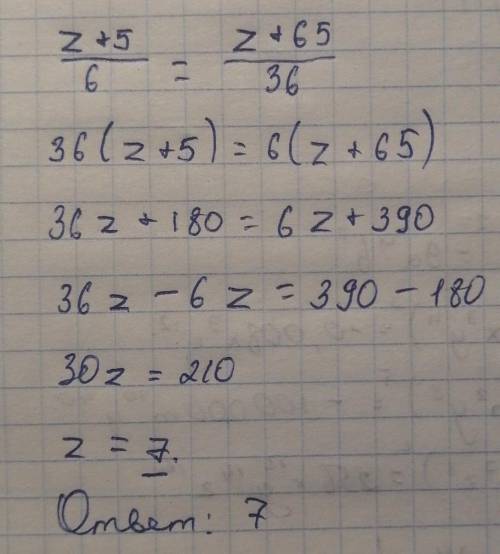 z+5/6 = z+65/36
36(z+5)=6(z+65)
36z+180=6z+390
36z-6z=390-180
30z=210
z=7.
Ответ: 7